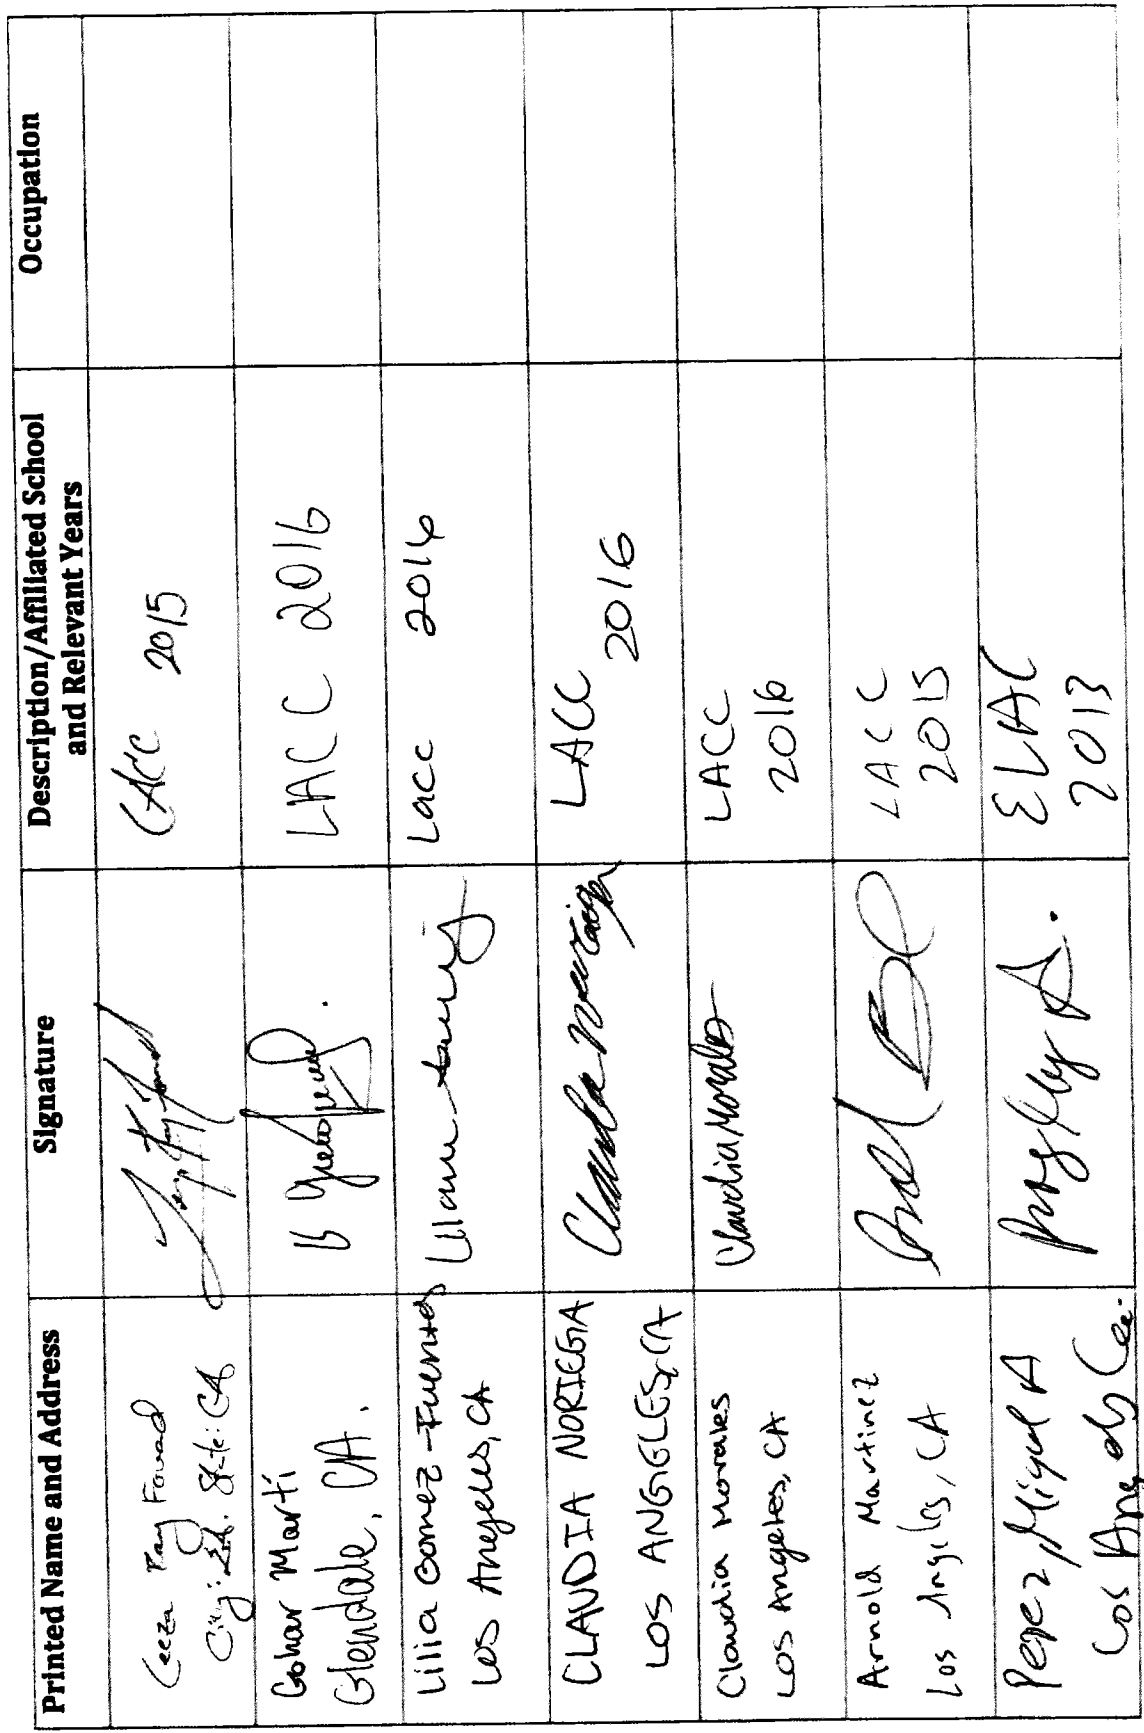 Printed Name and Address
Signature
Description/Affiliated School
and Relevant Years
Occupation
Leeza Fay Fouad
City: L.A. State: CA
LACC 2015
Gohar Marti
Glendale, CA.
LACC 2016
Lilia Gomez-Fuentes
Los Angeles, CA
Lacc 2016
CLAUDIA NORIEGA
LOS ANGELES, CA
Claudia Noriega
LACC
2016
Claudia Morales
Los Angeles, CA
Claudia Morales
LACC
2016
Arnold Martinez
Los Angeles, CA
LACC
2015
Perez, Miguel A
Los Angeles Ca.
ELAC
2013